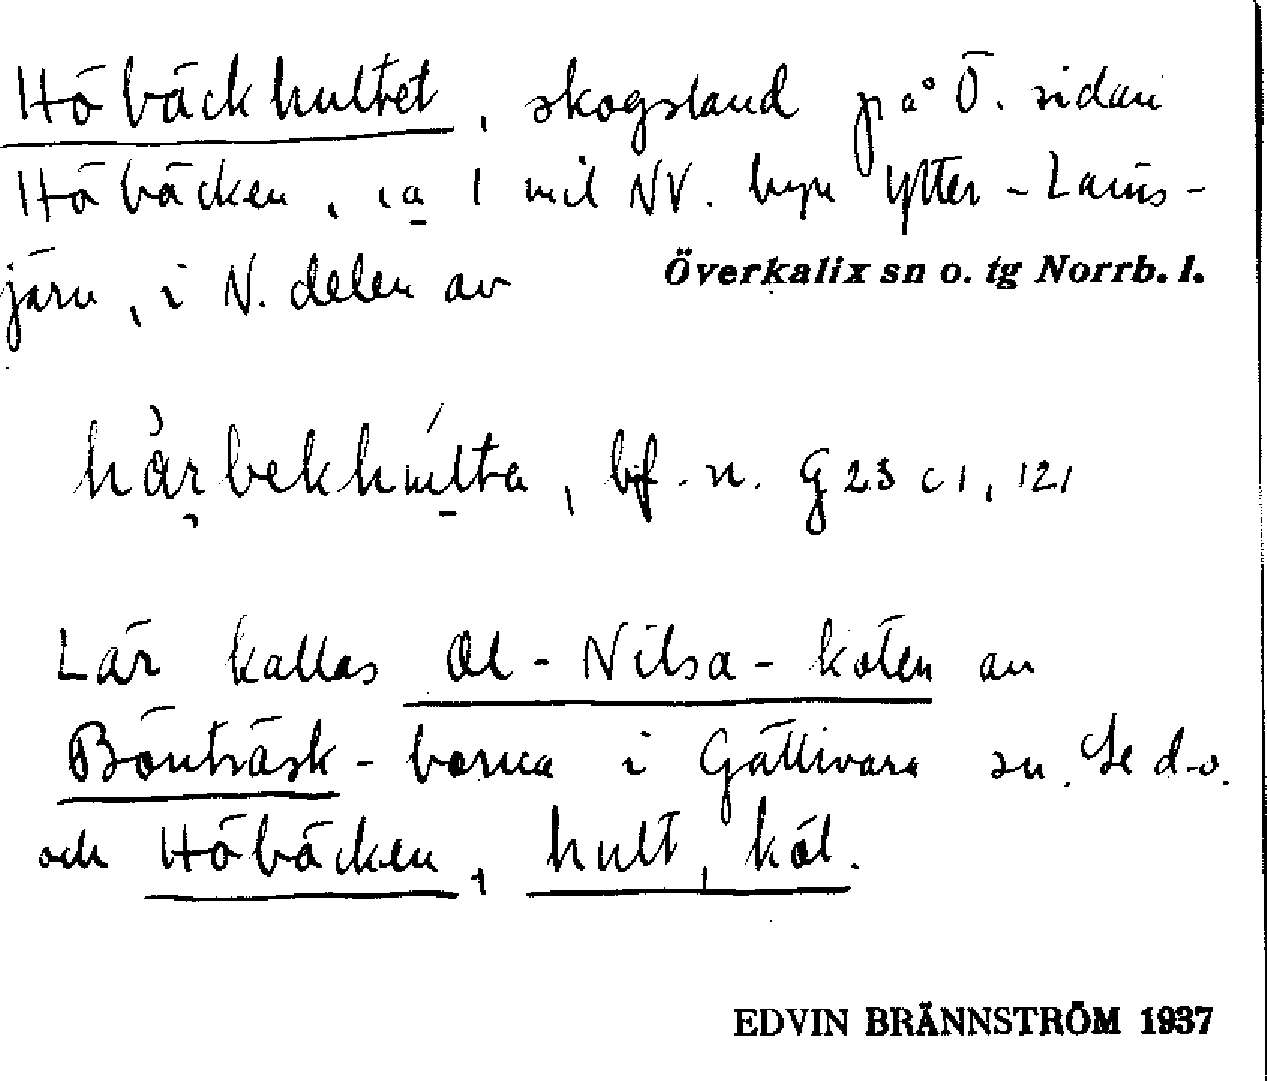 Höbäckhultet, skogsland på Ö. sidan
Höbäcken, ca 1 mil NV. byn Ytter-Lans-
järn, i N. delen av Överkalix sn o. tg Norrb. l.
bjf. n. G 23 c 1, 121
Lär kallas Ol-Nilsa-kölen av
Bönträsk-borna i Gällivare sn. Se d.o.
och Höbäcken, hult, köl.
EDVIN BRÄNNSTRÖM 1937